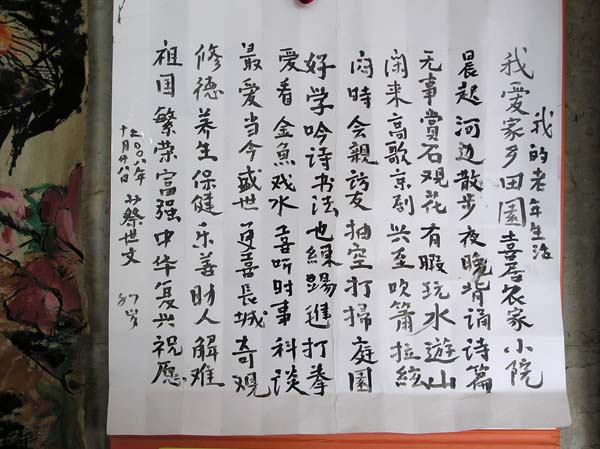 我的老年生活
我愛家乡田園喜居农家小院
晨起河边散步夜晚背诵诗篇
无事賞石观花有暇玩水遊山
闲来高歌京剧兴至吹簫拉絃
闲時会親访友抽空打掃庭園
好学吟诗书法也練踢毽打拳
爱看金魚戏水喜听时事科谈
最爱当今盛世更喜長城奇观
修德养生保健乐善助人解难
祖国繁荣富强中华复兴祝愿
二〇〇八年
十二月廿八日
蔡世文 87岁